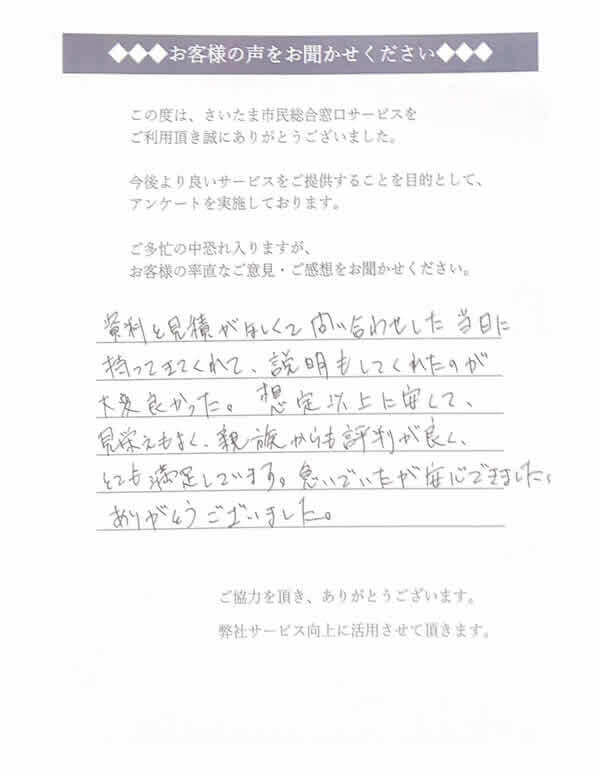 ◆◆◆お客様の声をお聞かせください◆◆◆
この度は、さいたま市民総合窓口サービスを
ご利用頂き誠にありがとうございました。
今後より良いサービスをご提供することを目的として、
アンケートを実施しております。
ご多忙の中恐れ入りますが、
お客様の率直なご意見・ご感想をお聞かせください。
資料と見積がほしくて問い合わせした当日に
持ってきてくれて、説明もしてくれたのが
大変良かった。想定以上に安くて、
見栄えもよく、親族からも評判が良く、
とても満足しています。急いでいたが安心できました。
ありがとうございました。
ご協力を頂き、ありがとうございます。
弊社サービス向上に活用させて頂きます。